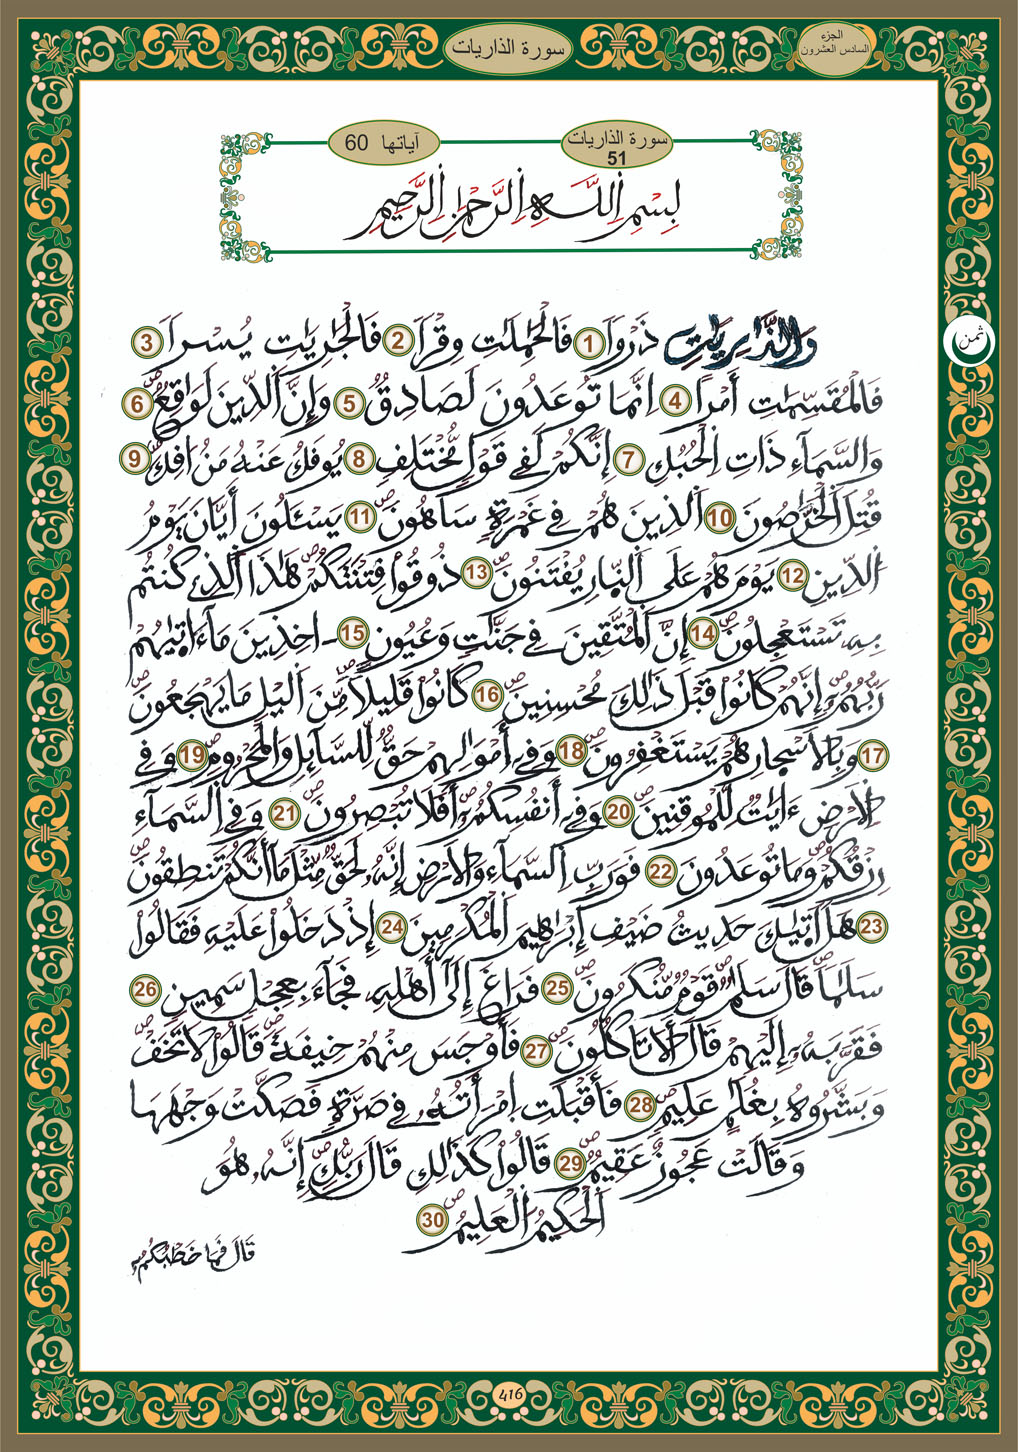 سورة الذاريات
الجزء
السادس العشرون
سورة الذاريات
51
آياتها 60
بِسْمِ اِ۬للَّهِ اِ۬لرَّحْمَٰنِ اِ۬لرَّحِيمِ
وَالذَّٰرِيَٰتِ ذَرْواٗ 1 فَالْحَٰمِلَٰتِ وِقْراٗ 2 فَالْجَٰرِيَٰتِ يُسْراٗ 3
فَالْمُقَسِّمَٰتِ أَمْراً 4 اِنَّمَا تُوعَدُونَ لَصَادِقٞ 5 وَإِنَّ اَ۬لدِّينَ لَوَٰقِعٞۖ 6
وَالسَّمَآءِ ذَاتِ اِ۬لْحُبُكِ 7 إِنَّكُمْ لَفِے قَوْلٖ مُّخْتَلِفٖ 8 يُوفَكُ عَنْهُ مَنُ ا۟فِكَۖ 9
قُتِلَ اَ۬لْخَرَّٰصُونَ 10 اَ۬لذِينَ هُمْ فِے غَمْرَةٖ سَاهُونَۖ 11 يَسْـَٔلُونَ أَيَّانَ يَوْمُ
اُ۬لدِّينِ 12 يَوْمَ هُمْ عَلَى اَ۬لنّ۪ارِ يُفْتَنُونَۖ 13 ذُوقُواْ فِتْنَتَكُمْۖ هَٰذَا اَ۬لذِے كُنتُم
بِهِۦ تَسْتَعْجِلُونَۖ 14 إِنَّ اَ۬لْمُتَّقِينَ فِے جَنَّٰتٖ وَعُيُونٍ 15 اٰخِذِينَ مَآ ءَات۪يٰهُمْ
رَبُّهُمُۥٓۖ إِنَّهُمْ كَانُواْ قَبْلَ ذَٰلِكَ مُحْسِنِينَۖ 16 كَانُواْ قَلِيلاٗ مِّنَ اَ۬ليْلِ مَا يَهْجَعُونَۖ
17 وَبِالَاسْح۪ارِ هُمْ يَسْتَغْفِرُونَۖ 18 وَفِےٓ أَمْوَٰلِهِمْ حَقّٞ لِّلسَّآئِلِ وَالْمَحْرُومِۖ 19 وَفِے
اِ۬لَارْضِ ءَايَٰتٞ لِّلْمُوقِنِينَۖ 20 وَفِےٓ أَنفُسِكُمُۥٓۖ أَفَلَا تُبْصِرُونَۖ 21 وَفِے اِ۬لسَّمَآءِ
رِزْقُكُمْ وَمَا تُوعَدُونَۖ 22 فَوَرَبِّ اِ۬لسَّمَآءِ وَالَارْضِ إِنَّهُۥ لَحَقّٞ مِّثْلَ مَآ أَنَّكُمْ تَنطِقُونَۖ
23 هَلَ اَت۪يٰكَ حَدِيثُ ضَيْفِ إِبْرَٰهِيمَ اَ۬لْمُكْرَمِينَ 24 إِذْ دَخَلُواْ عَلَيْهِ فَقَالُواْ
سَلَٰماٗۖ قَالَ سَلَٰمٞۖ قَوْمٞ مُّنكَرُونَۖ 25 فَرَاغَ إِلَىٰٓ أَهْلِهِۦ فَجَآءَ بِعِجْلٖ سَمِينٖ 26
فَقَرَّبَهُۥٓ إِلَيْهِمْ قَالَ أَلَا تَاكُلُونَۖ 27 فَأَوْجَسَ مِنْهُمْ خِيفَةٗۖ قَالُواْ لَا تَخَفْۖ
وَبَشَّرُوهُ بِغُلَٰمٍ عَلِيمٖۖ 28 فَأَقْبَلَتِ اِ۪مْرَأَتُهُۥ فِے صَرَّةٖ فَصَكَّتْ وَجْهَهَا
وَقَالَتْ عَجُوزٌ عَقِيمٞۖ 29 قَالُواْ كَذَٰلِكِ قَالَ رَبُّكِۖ إِنَّهُۥ هُوَ
اَ۬لْحَكِيمُ اُ۬لْعَلِيمُۖ 30
قَالَ فَمَا خَطْبُكُمُۥٓ
ثمن
416